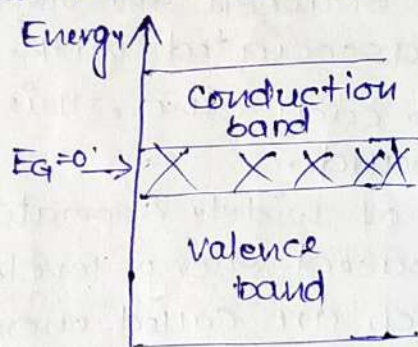 Energy
Conduction
band
EG=0
X X X X X
Valence
band